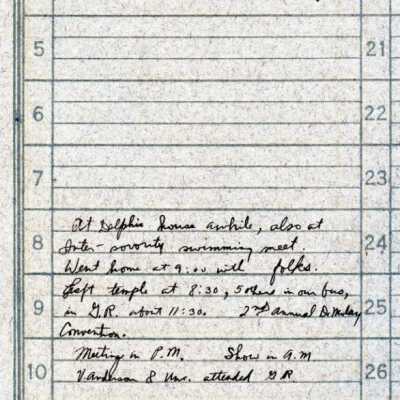 5 21
6 22
7 23
At Delphis house awhile, also at
8 Inter-sorority swimming meet. 24
Went home at 9:00 with folks.
Left temple at 8:30, 5 others in our bus,
9 in G.R. about 11:30. 2nd annual DeMolay 25
Convention.
Meeting in P.M. Show in A.M
10 Vanderson & attended G.R. 26